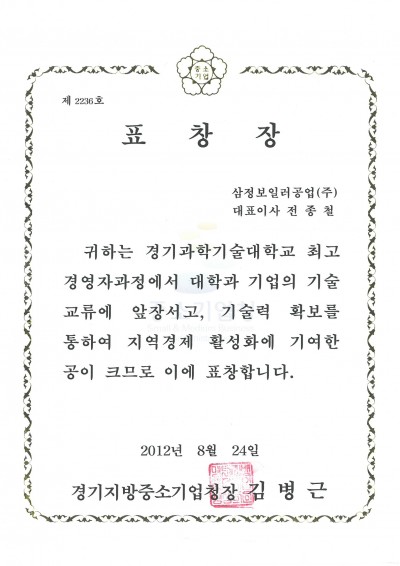 중소
기업
제 2236호
표 창 장
삼정보일러공업(주)
대표이사 전 종 철
귀하는 경기과학기술대학교 최고
경영자과정에서 대학과 기업의 기술
교류에 앞장서고, 기술력 확보를
통하여 지역경제 활성화에 기여한
공이 크므로 이에 표창합니다.
2012년 8월 24일
경기지방중소기업청장 김 병 근